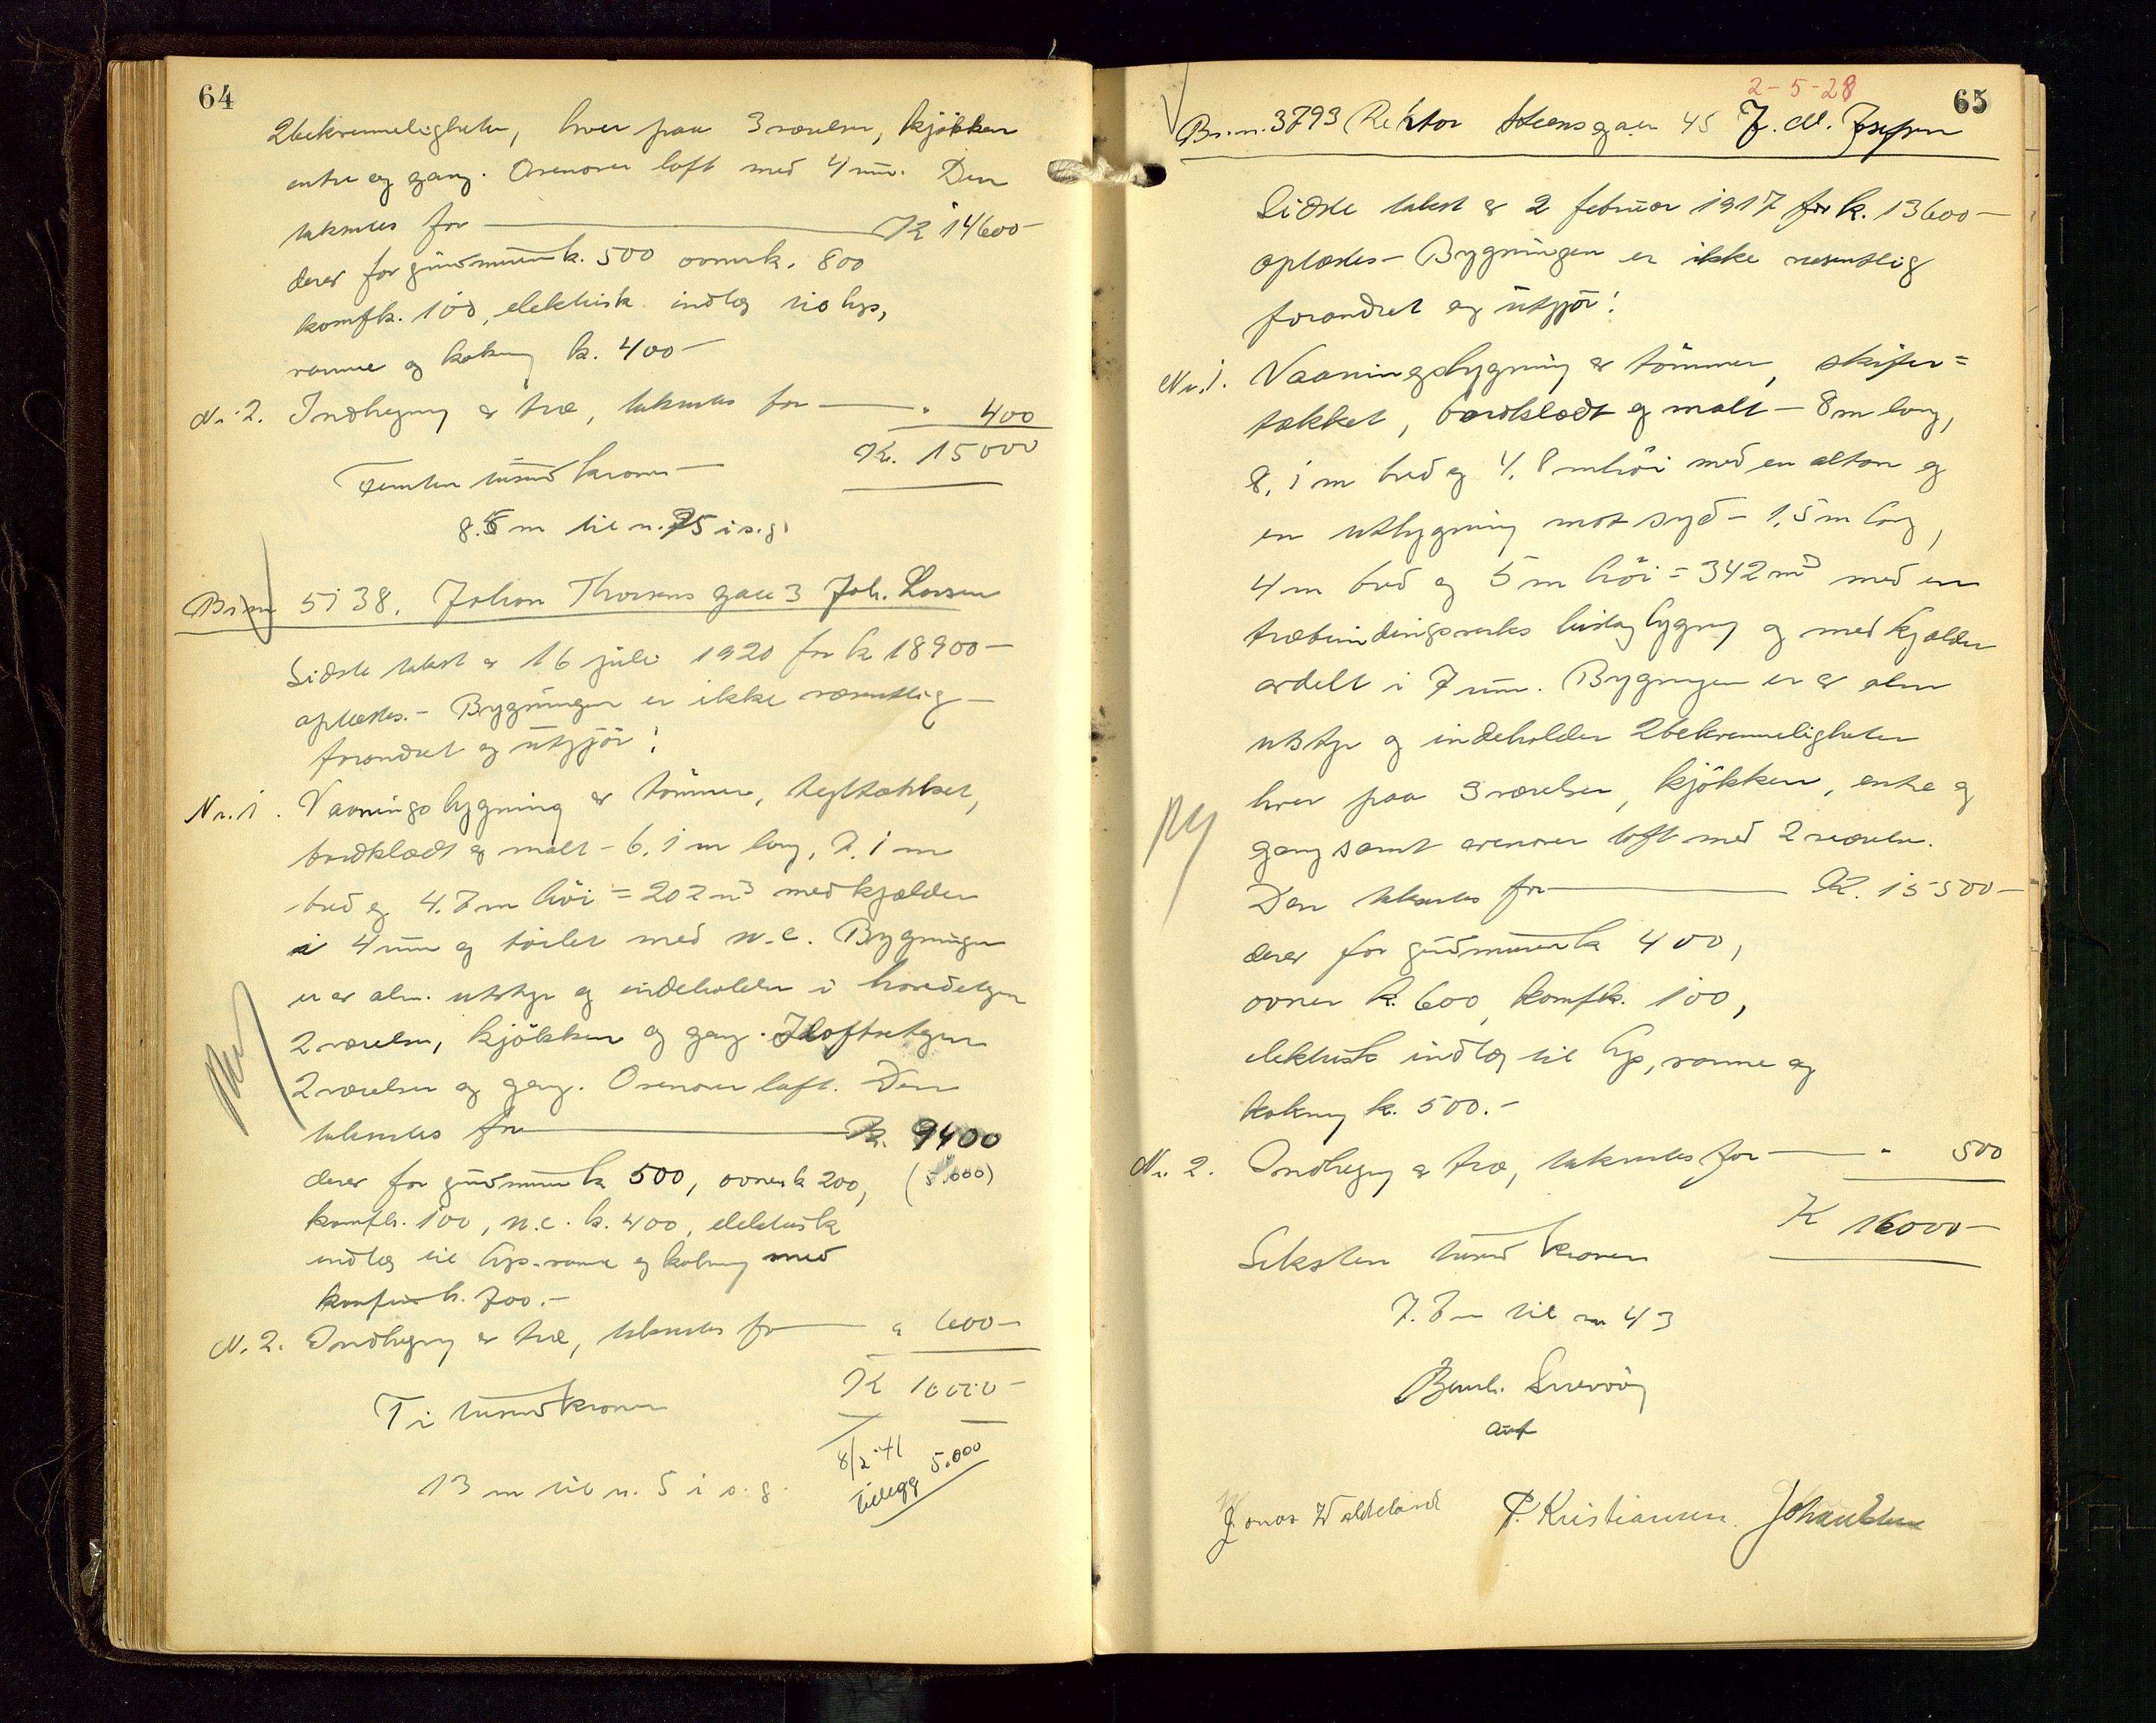 64
2bekvemmeligheter, hver paa 3 værelser, kjökken
entre og gang. Ovenover loft med 4 rum. Den
takseres for K 14600-
derav for grundmuren k. 500 ovner k. 800
komf k. 100, elektrisk indlæg til lys,
varme og kokning k. 400-
Nr. 2. Indhegning av træ, takseres for " 400
K. 15000
Femten tusind kroner-
8.5 m til n. 75 i s. g.
Br. nr 5138. Johan Thorsens gate 3 Joh. Larsen
Sidste takst av 16 juli 1920 for k 18900-
oplæstes.- Bygningen er ikke væsentlig-
forandret og utgjör:
Nr. 1. Vaaningsbygning av tömmer, tegltækket,
bordklædt og malt - 6.1 m lang, 7.1 m
bred og 4.7 m höi = 202 m3 med kjelder
i 4 rum og toilet med w.c. Bygningen
er av alm. utstyr og indeholder i hovedetagen
2 værelser, kjökken og gang. I loftsetagen
2 værelser og gang. Ovenover loft. Den
takseres for K. 9400
derav for grundmuren k 500, ovner k 200, (5.000)
komf k. 100, w.c. k. 400, elektrisk
indlæg til lys, varme og kokning med
komfur k. 700.-
N. 2. Indhegning av træ, takseres for " 600-
K 10000-
Ti tusind kroner
8/2-41
Tillegg 5.000
13 m til n. 5 i s. g.
Ny
65
2-5-28
Br. nr. 3793 Rektor Steensgaten 45 J. M. Josefsen
Sidste takst av 2 februar 1917 for k. 13600-
oplæstes- Bygningen er ikke væsentlig
forandret og utgjör:
Nr. 1. Vaaningsbygning av tömmer, skifer=
tækket, bordklædt og malt - 8 m lang,
8.1 m bred og 4.8 m höi med en alton og
en utbygning mot syd - 1.5 m lang,
4 m bred og 5 m höi = 342 m3 med en
træbindingsverks bislagbygning og med kjelder
avdelt i 7 rum. Bygningen er av alm
utstyr og indeholder 2bekvemmeligheter
hver paa 3 værelser, kjökken, entre og
gang samt ovenover loft med 2 værelser.
Den takseres for K. 15500-
derav for grundmuren k 400,
ovner k. 600, komf k. 100,
elektrisk indlæg til lys, varme og
kokning k. 500.-
Nr. 2. Indhegning av træ, takseres for " 500
K 16000-
Seksten tusind kroner
7.8 m til nr 43
Ny
Jonas Waldeland P. Kristiansen.